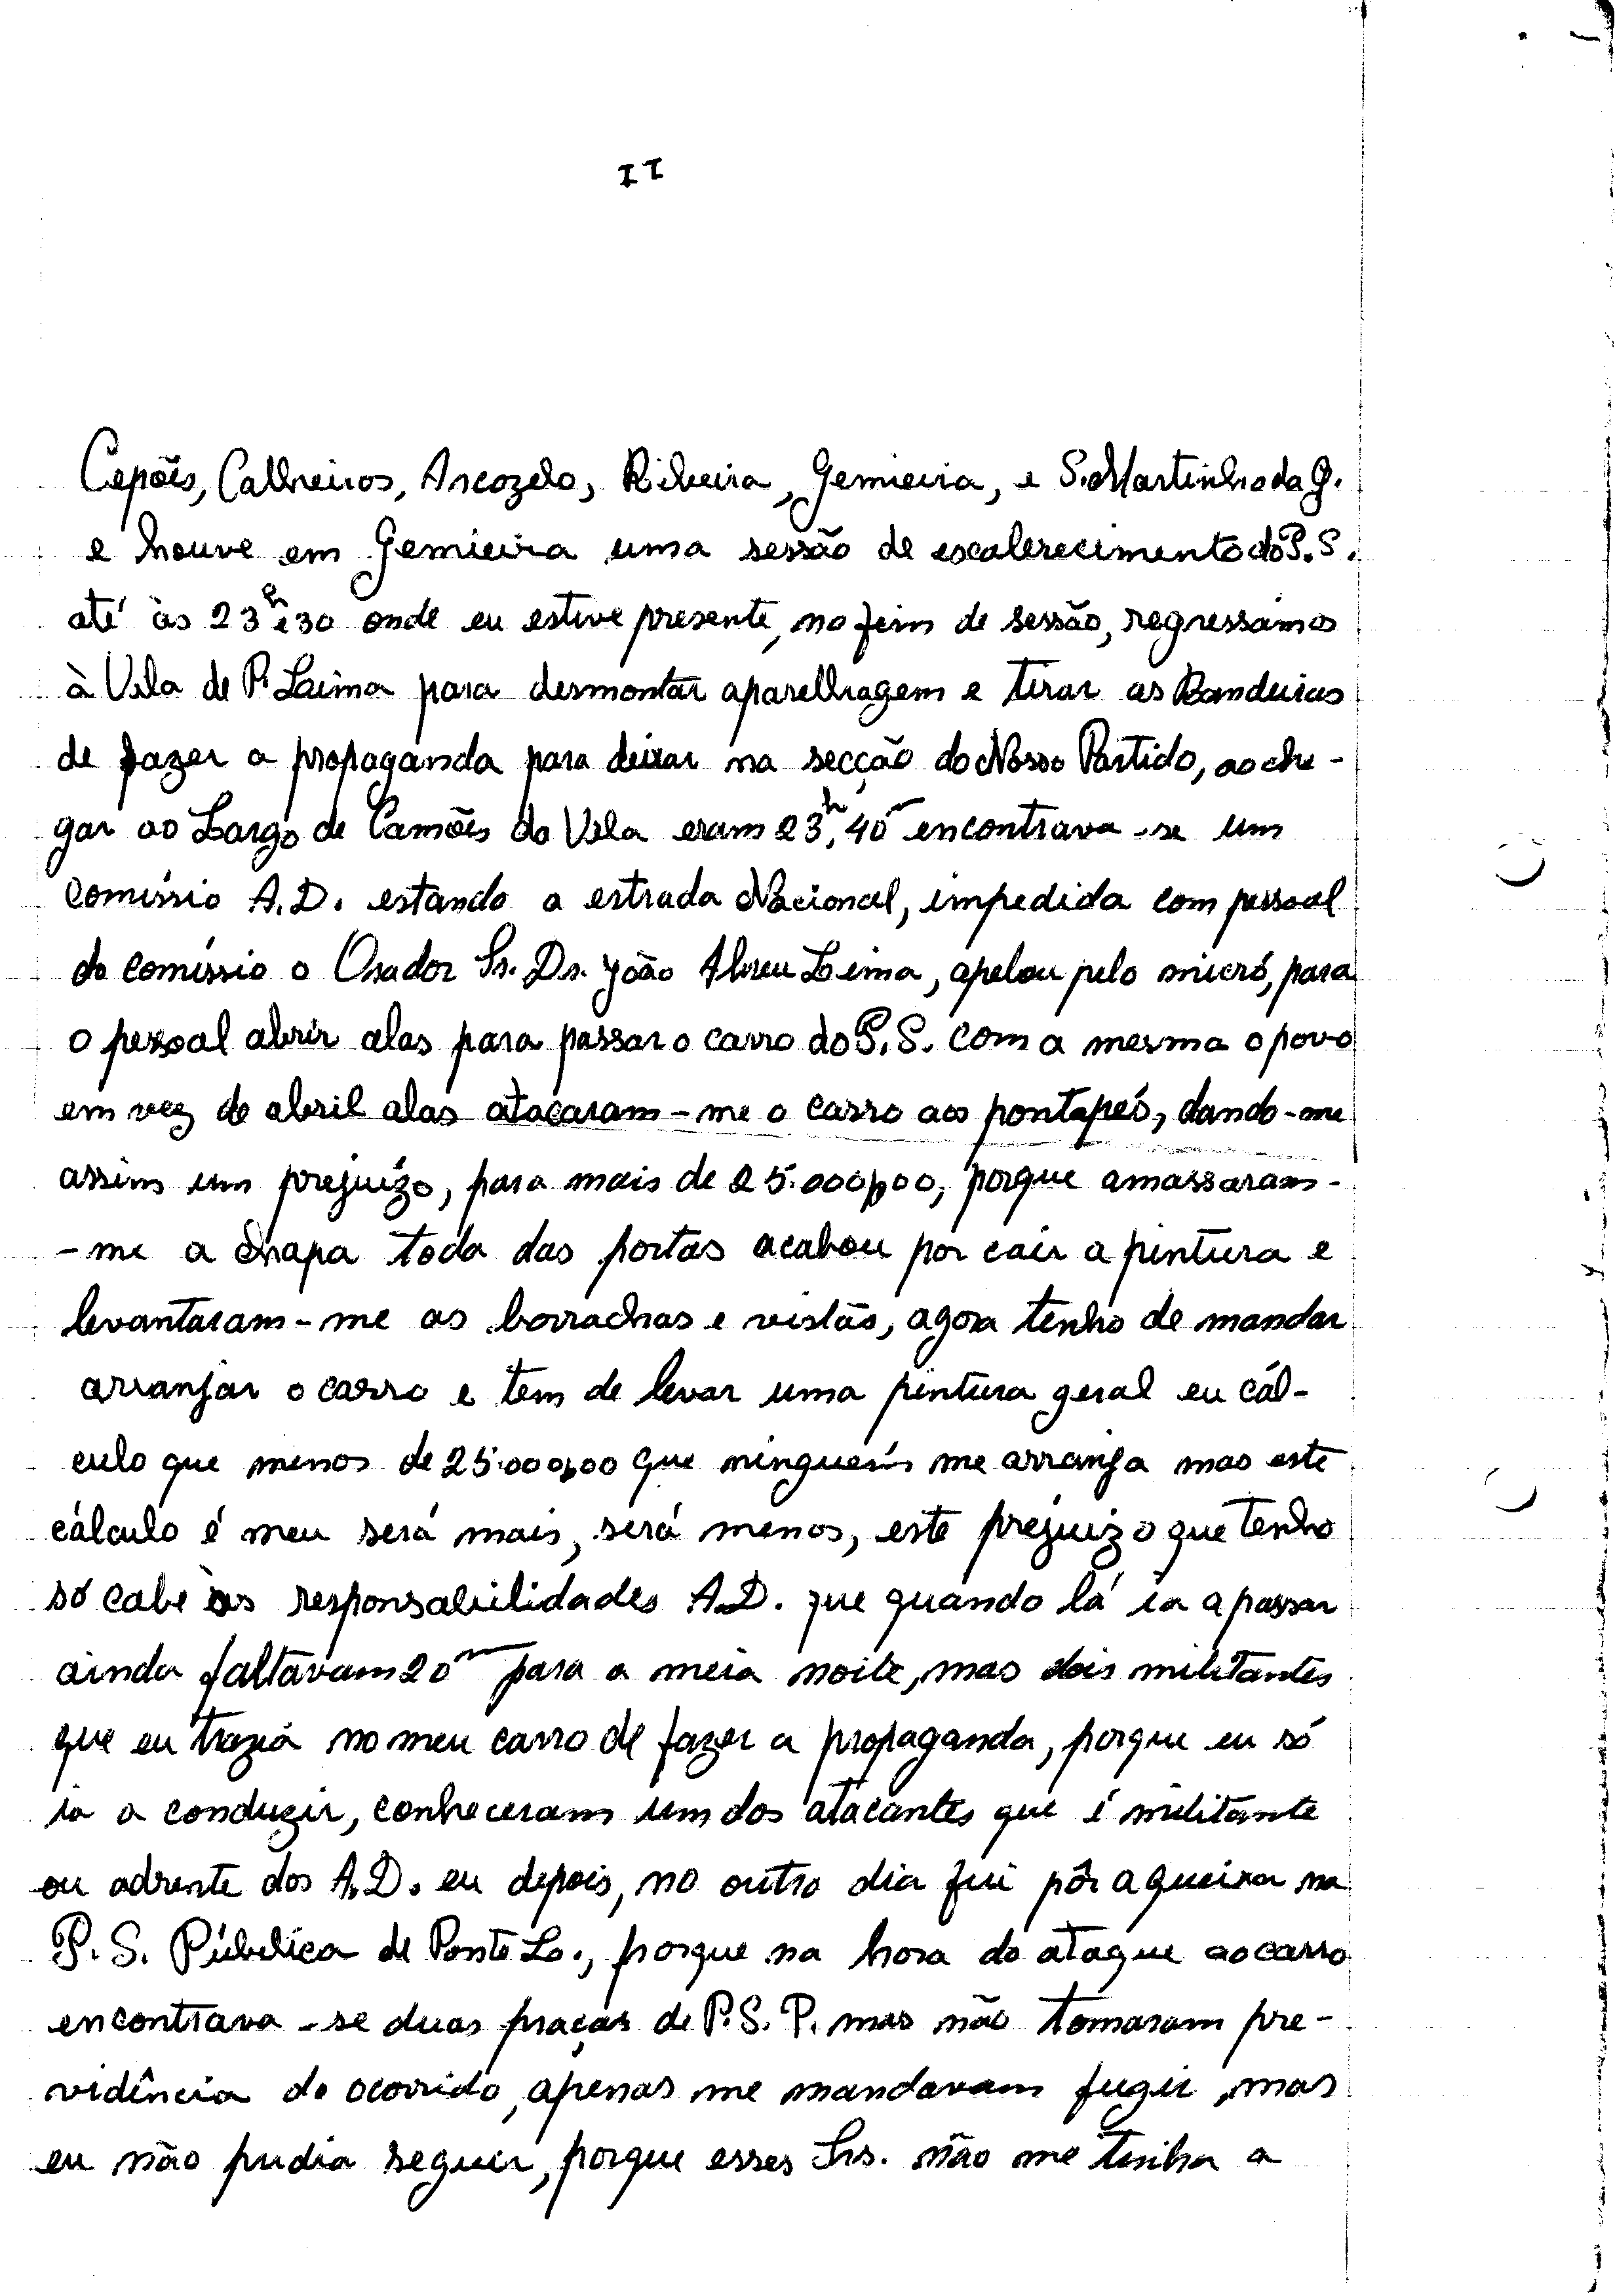 II
Cepões, Calheiros, Arcozelo, Ribeira, Gemieira, e S. Martinho da G.
e houve em Gemieira uma sessão de escalerecimento do P.S.
até às 23h e 30 onde eu estive presente, no fim de sessão, regressamos
à Vila de P. Laima para desmontar aparelhagem e tirar as Bandeiras
de fazer a propaganda para deixar na secção do Nosso Partido, ao che-
gar ao Largo de Camões da Vila eram 23h,40m encontrava-se um
comissio A.D. estando a estrada Nacional, impedida com pessoal
do comíssio o Orador Sr. Dr. João Abreu Leima, apelou pelo micró, para
o pessoal abrir alas para passar o carro do P.S. com a mesma o povo
em vez de abril alas atacaram-me o carro aos pontapés, dando-me
assim um prejuízo, para mais de 25.000$00, porque amassaram-
-me a chapa toda das portas acabou por cair a pintura e
levantaram-me as borrachas e vistas, agora tenho de mandar
arranjar o carro e tem de levar uma pintura geral eu cál-
culo que menos de 25.000$00 que ninguém me arranja mas este
cálculo é meu será mais, será menos, este prejuizo que tenho
só cabe às responsabilidades A.D. que quando lá ia a passar
ainda faltavam 20m para a meia noite, mas dois militantes
que eu trazia no meu carro de fazer a propaganda, porque eu só
ia a conduzir, conheceram um dos atacantes que é militante
ou adrente dos A.D. eu depois, no outro dia fui pôr a queixa na
P.S. Pública de Ponte L., porque na hora do ataque ao carro
encontrava-se duas praças de P.S.P. mas não tomaram pre-
vidência do ocorrido, apenas me mandavam fugir, mas
eu não pudia seguir, porque esses Srs. não me tinha a